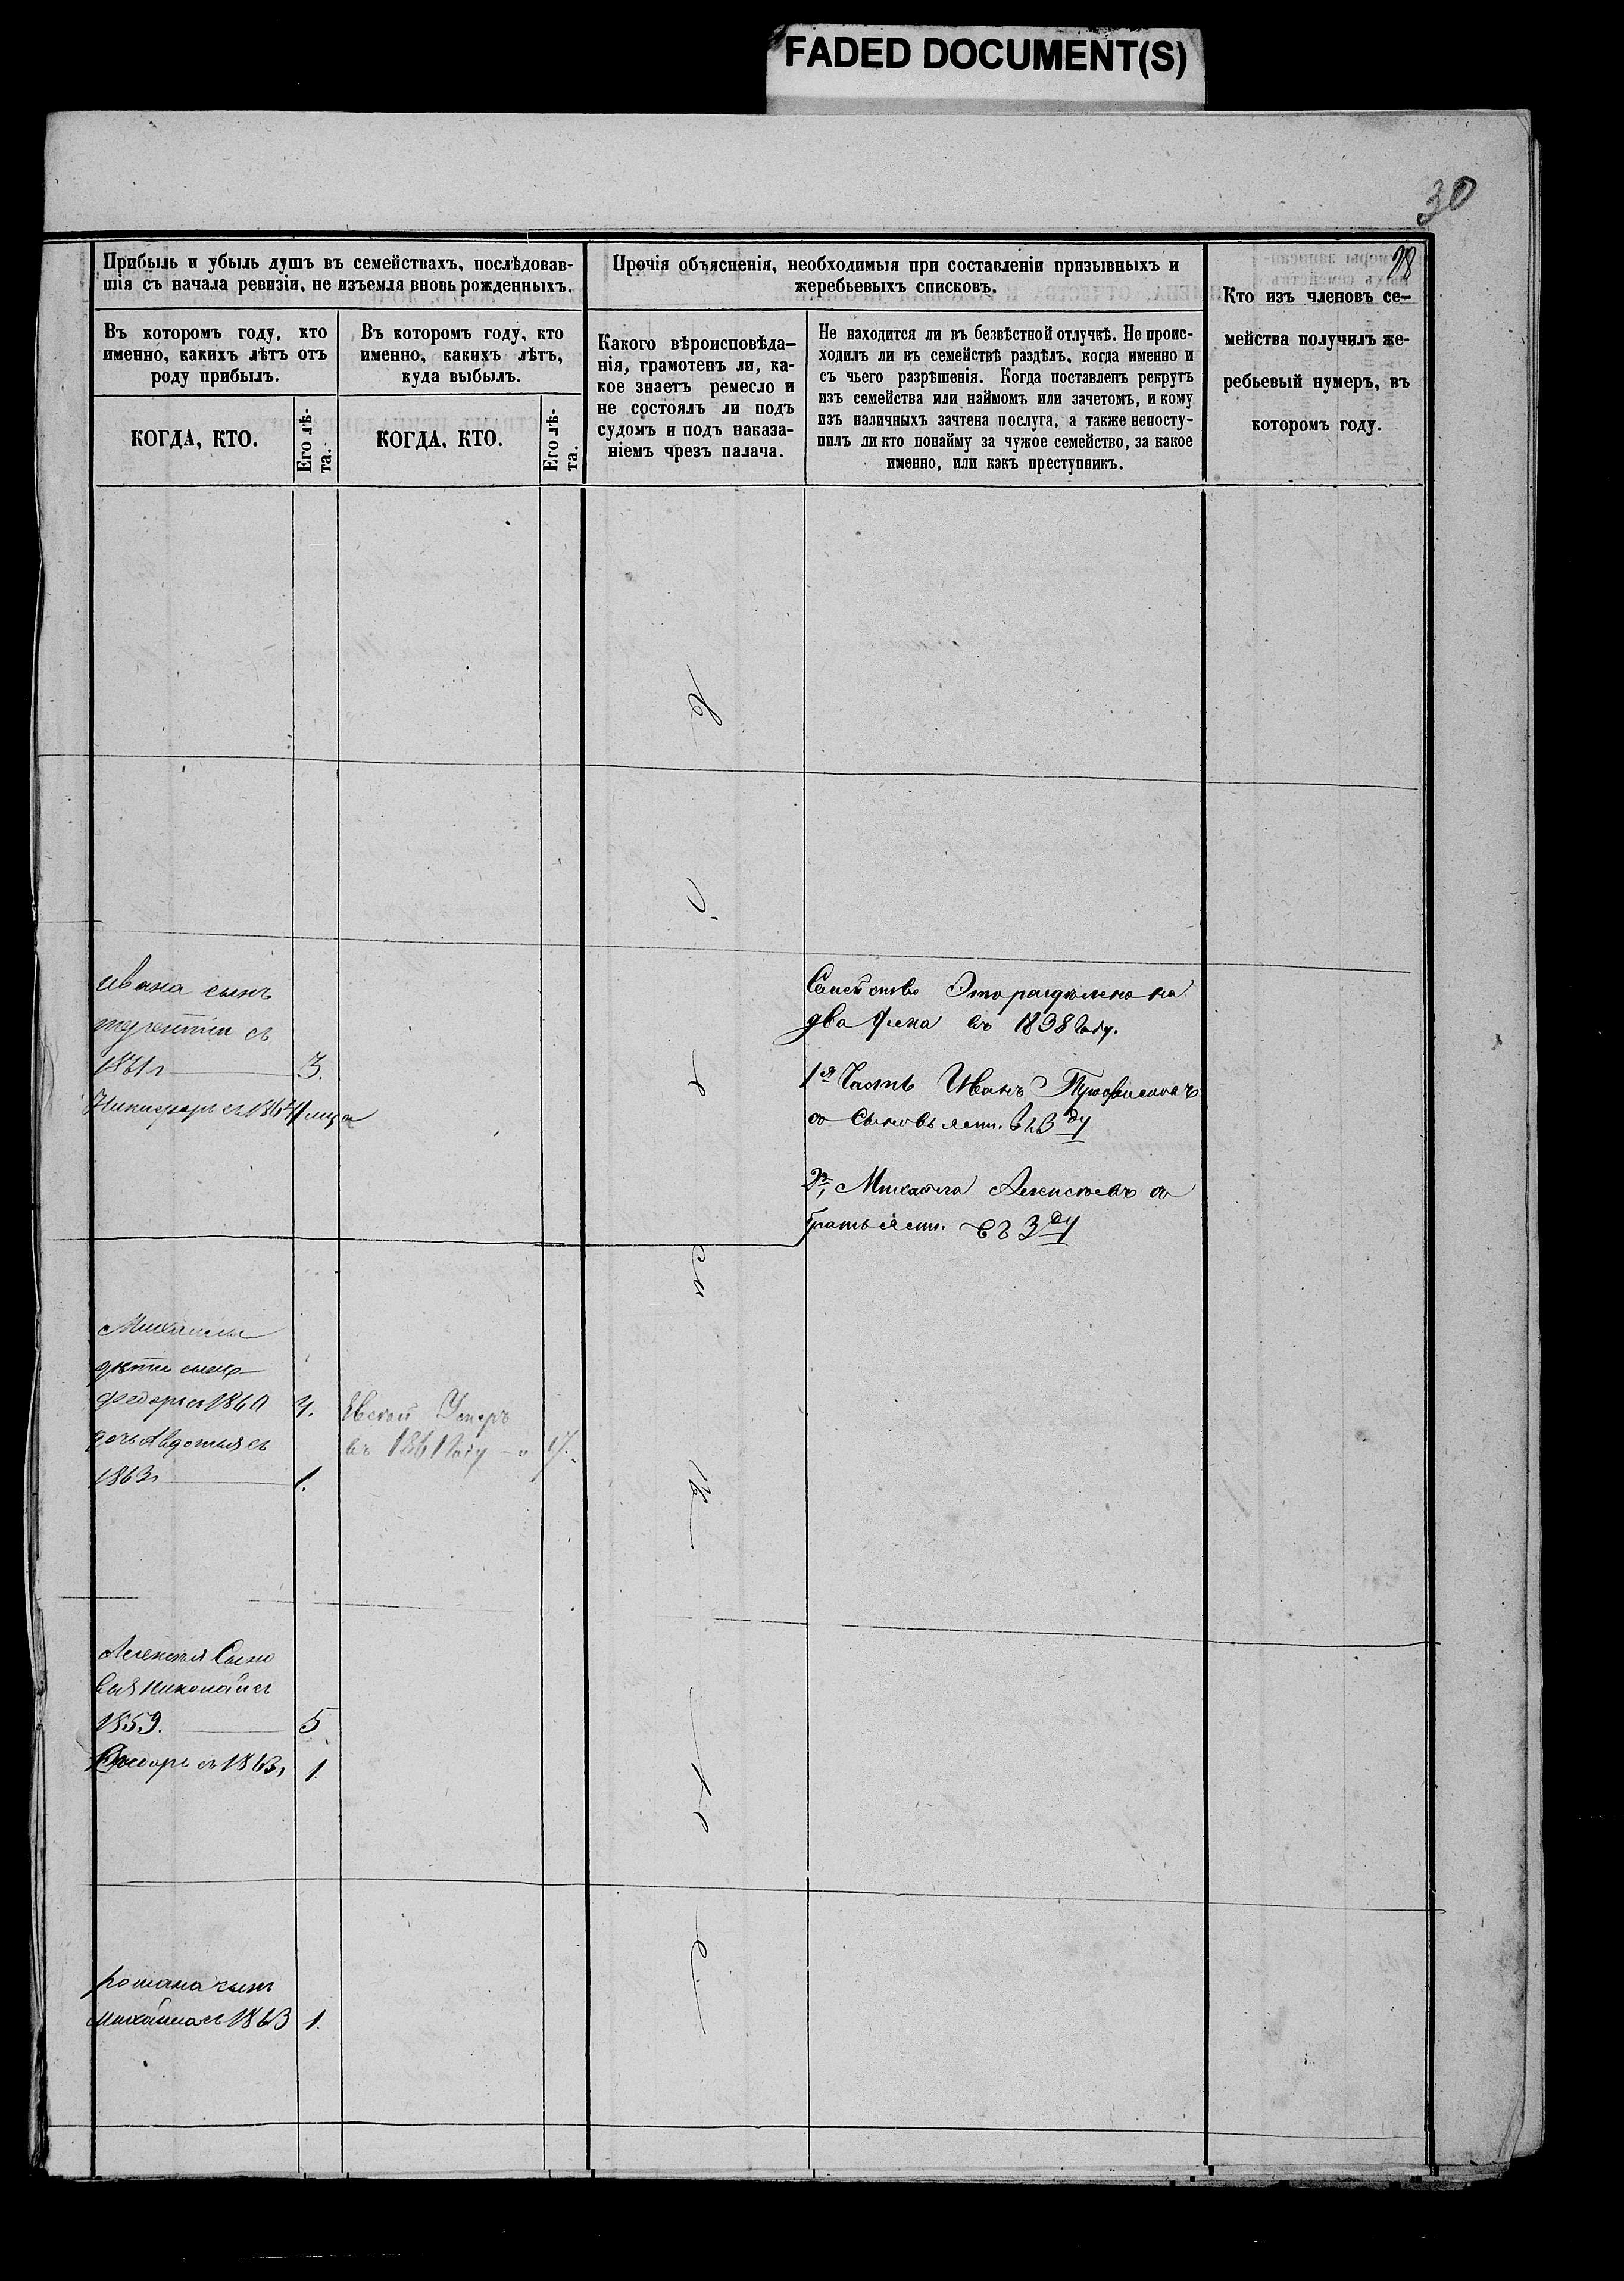 FADED DOCUMENT(S)
30
28
Прибыль и убыль душъ въ семействахъ, послѣдовав-
шія съ начала ревизіи, не изъемля вновь рожденныхъ.
Въ которомъ году, кто
именно, какихъ лѣтъ отъ
роду прибылъ.
КОГДА, КТО.
Его лѣ-
та.
Въ которомъ году, кто
именно, какихъ лѣтъ,
куда выбылъ.
КОГДА, КТО.
Его лѣ-
та.
Прочія объясненія, необходимыя при составленіи призывныхъ и
жеребьевыхъ списковъ.
Какого вѣроисповѣда-
нія, грамотенъ ли, ка-
кое знаетъ ремесло и
не состоялъ ли подъ
судомъ и подъ наказа-
ніемъ чрезъ палача.
Не находится ли въ безвѣстной отлучкѣ. Не проис-
ходилъ ли въ семействѣ раздѣлъ, когда именно и
съ чьего разрѣшенія. Когда поставленъ рекрутъ
изъ семейства или наймомъ или зачетомъ, и кому
изъ наличныхъ зачтена послуга, а также непосту-
пилъ ли кто понайму за чужое семейство, за какое
именно, или какъ преступникъ.
Кто изъ членовъ се-
мейства получилъ же-
ребьевый нумеръ, въ
которомъ году.
Ивана сынъ
терентіи съ
1861г 3.
Никифоръ съ
Семейство Это разделено на
два въ 1838 году.
1я Часть Иванъ
со сыновьями.
2я, Михаила Алексѣевъ со
братьями. 3
Михаилы
дѣти сынъ
федоръ съ 1860 4.
дочь Авдотья съ
1863г 1.
Евсей Умеръ
въ 1861 году
Алексѣя Сыно
вья Николай съ
1859. 5
съ 1863г 1
романа сынъ
Михаила съ 1863 1.